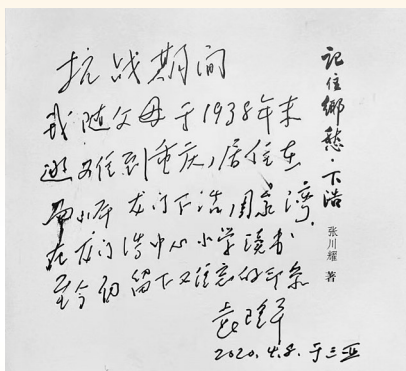 記住鄉愁·下浩
张川耀 著
抗战期间
我随父母于1938年末
逃难到重庆,居住在
南岸龙门下浩周家湾,
在龙门浩中心小学读书
至今仍留下难忘的印象
袁隆平
2020.4.8.于三亚